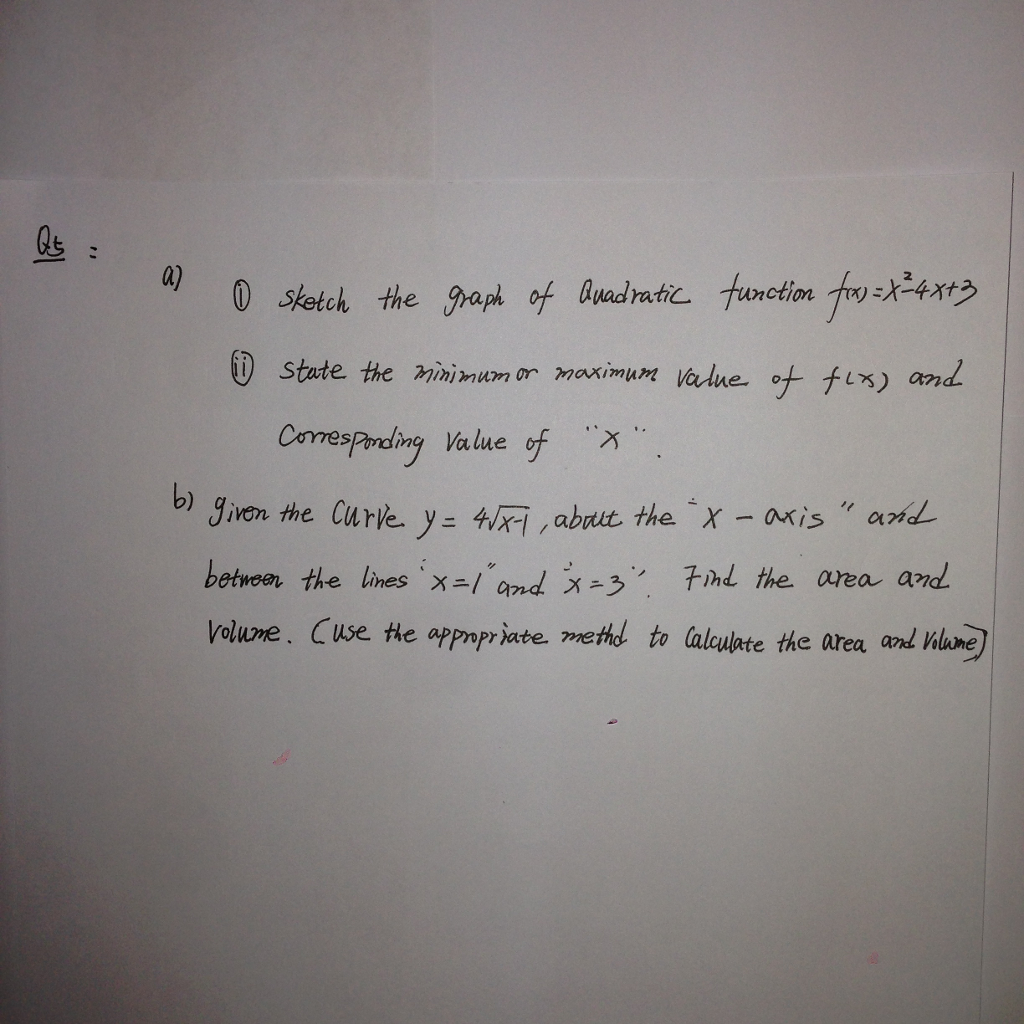 Q5 :
a) (i) sketch the graph of Quadratic function f(x)=x²-4x+3
(ii) state the minimum or maximum value of f(x) and
Corresponding Value of "x".
b) given the Curve y = 4√x-1 , about the "x - axis" and
between the lines "x=1" and "x=3". Find the area and
Volume. (use the appropriate methd to Calculate the area and Volume)